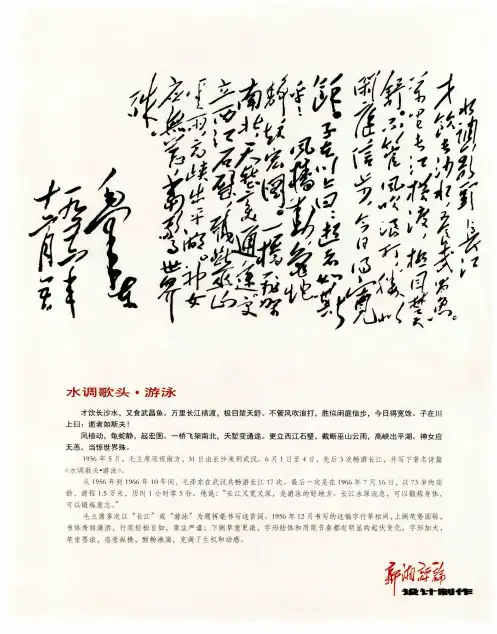 水调歌头 长江
才饮长沙水 又食武昌鱼。
万里长江横渡，极目楚天
舒。不管风吹浪打，胜似
闲庭信步，今日得宽
余。子在川上曰：逝者如斯
乎！风樯动，龟蛇
静，起宏图。一桥飞架
南北，天堑变通途。更
立西江石壁，截断巫山
云雨，高峡出平湖。神女
应无恙，当惊世界
殊。
毛泽东
一九五六年
十二月五日
水调歌头·游泳
才饮长沙水，又食武昌鱼。万里长江横渡，极目楚天舒。不管风吹浪打，胜似闲庭信步，今日得宽馀。子在川
上曰：逝者如斯夫！
风樯动，龟蛇静，起宏图。一桥飞架南北，天堑变通途。更立西江石壁，截断巫山云雨，高峡出平湖。神女应
无恙，当惊世界殊。
1956年5月，毛主席巡视南方，31日由长沙来到武汉。6月1日至4日，先后3次畅游长江，并写下著名诗篇
《水调歌头·游泳》。
从1956年到1966年10年间，毛泽东在武汉共畅游长江17次。最后一次是在1966年7月16日，以73岁的高
龄，游程1.5万米，历时1小时零5分。他说：“长江又宽又深，是游泳的好地方。长江水深流急，可以锻炼身体，
可以锻炼意志。”
毛主席多次以“长江”或“游泳”为题挥毫书写这首词。1956年12月书写的这幅字行草相间，上阕笔势圆转，
书体秀丽潇洒，行笔轻松自如，章法严谨；下阕草意更浓，字形结体和用笔节奏都有明显的起伏变化，字形加大，
笔重墨浓，恣意纵横，酣畅淋漓，充满了生机和动感。
新湘评论
设计制作